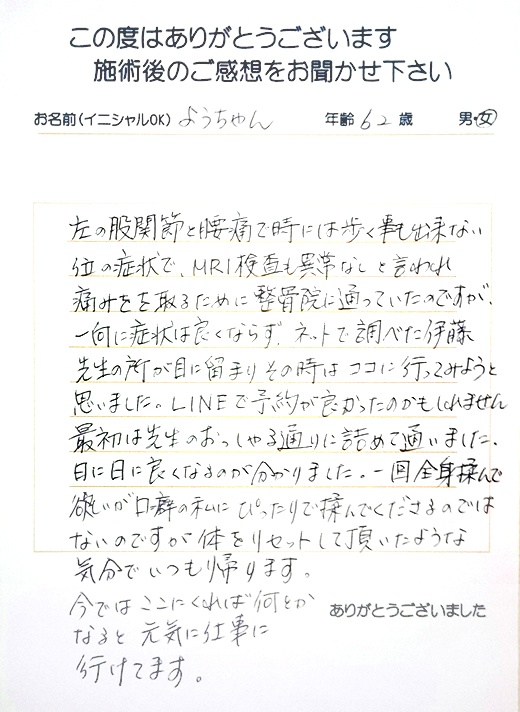 この度はありがとうございます
施術後のご感想をお聞かせ下さい
お名前(イニシャルOK) ようちゃん 年齢 62 歳 男・女
左の股関節と腰痛で時には歩く事も出来ない
位の症状で、MRI検査も異常なしと言われ
痛みをを取るために整骨院に通っていたのですが、
一向に症状は良くならず、ネットで調べた伊藤
先生の所が目に留まりその時はココに行ってみようと
思いました。LINEで予約が良かったのかもしれません
最初は先生のおっしゃる通りに詰めて通いました、
日に日に良くなるのが分かりました。一回全身揉んで
欲しいが口癖の私にぴったりで揉んでくださるのでは
ないのですが体をリセットして頂いたような
気分でいつも帰ります。
今ではここにくれば何とか
なると元気に仕事に
行けてます。
ありがとうございました